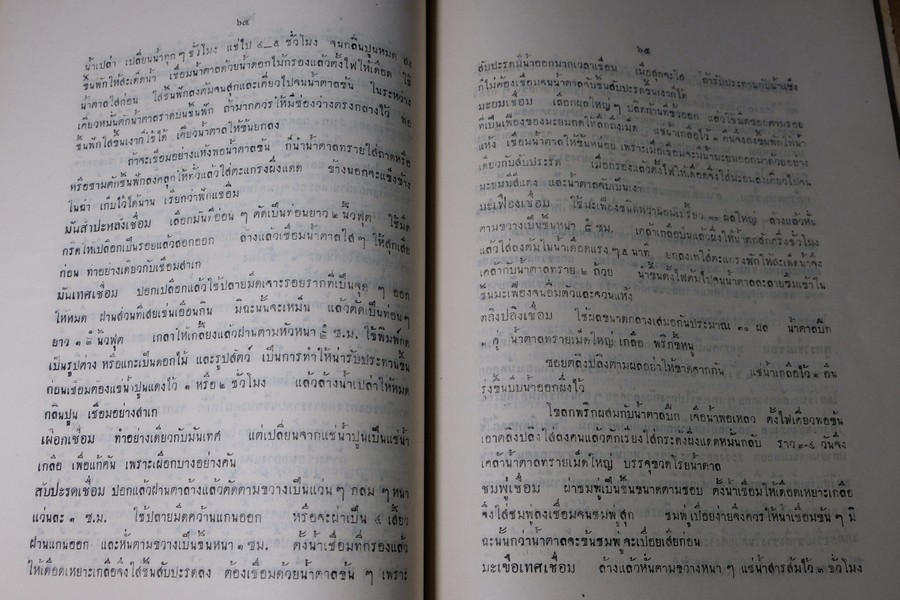 ๖๔
น้ำเปล่า เปลี่ยนน้ำทุก ๆ ชั่วโมง แช่ไป ๔_๕ ชั่วโมง จนกลิ่นปูนหมด
ชิ้นฟักให้สะเด็ดน้ำ เชื่อมน้ำตาลด้วยน้ำดอกไม้กรองแล้วตั้งไฟให้เดือด ใช้
น้ำตาลใส่ก่อน ใส่ชิ้นฟักลงต้มจนสุกและเคี่ยวไปจนน้ำตาลข้น ในระหว่าง
เคี่ยวหมั่นตักน้ำตาลราดบนชิ้นฟัก ถ้ามากควรให้มีช่องว่างตรงกลางไว้ พอ
ชิ้นฟักใสขึ้นเงาก็ใช้ได้ เคี่ยวน้ำตาลให้ข้นยกลง
ถ้าจะเชื่อมอย่างแห้งพอน้ำตาลข้น ก็นำน้ำตาลทรายใส่ถาดหรือ
หรือชามตักชิ้นฟักลงคลุกให้ทั่วแล้วใส่ตะแกรงผึ่งแดด ข้างนอกจะแข็งข้าง
ในฉ่ำ เก็บไว้ได้นาน เรียกว่าฟักแช่อิ่ม
มันสำปะหลังเชื่อม เลือกมันที่อ่อน ๆ ตัดเป็นท่อนยาว ๒ นิ้วฟุต ใช้มีด
กรีดให้เปลือกเป็นรอยแล้วลอกออก ล้างแล้วเชื่อมน้ำตาลใส ๆ ให้สุกเสีย
ก่อน ทำอย่างเดียวกับเชื่อมสาเก
มันเทศเชื่อม ปอกเปลือกแล้วใช้ปลายมีดเจาะรอยรากที่เป็นจุด ๆ ออก
ให้หมด ฝานส่วนที่เสียเช่นเอ่อนกิน มิฉะนั้นจะเหม็น แล้วตัดเป็นท่อนๆ
ยาว นิ้วฟุต เกลาให้เกลี้ยงแล้วฝานตามหัวหนา ซ.ม. ใช้พิมพ์กด
เป็นรูปต่าง หรือแกะเป็นดอกไม้ และรูปสัตว์ เป็นการทำให้น่ารับประทานขึ้น
ก่อนเชื่อมต้องแช่น้ำปูนแดงไว้ ๑ หรือ ๒ ชั่วโมง แล้วล้างน้ำเปล่าให้หมด
กลิ่นปูน เชื่อมอย่างสาเก
เผือกเชื่อม ทำอย่างเดียวกับมันเทศ แต่เปลี่ยนจากแช่น้ำปูนเป็นแช่น้ำ
เกลือ เพื่อแก้คัน เพราะเผือกบางอย่างคัน
สับปะรดเชื่อม ปอกแล้วฝานตาล้างแล้วตัดตามขวางเป็นแว่น ๆ กลม ๆ หนา
แว่นละ ๑ ซ.ม. ใช้ปลายมีดคว้านแกนออก หรือจะผ่าเป็น ๔ เสี้ยว
ฝานแกนออก และหั่นตามขวางเป็นชิ้นหนา ๑ ซม. ตั้งน้ำเชื่อมที่กรองแล้ว
ให้เดือดเหยาะเกลือจึงใส่ชิ้นสับปะรดลง ต้องเชื่อมด้วยน้ำตาลข้น ๆ เพราะ
๖๕
สับปะรดมีน้ำออกมากเวลาเชื่อม เมื่อสุกจะใส ถ้ารับประทานกับน้ำแข็ง
ก็ไม่ต้องเชื่อมจนน้ำตาลจับชิ้นสับปะรดขึ้นเงาก็ได้
มะยมเชื่อม เลือกผลใหญ่ ๆ ปลิดก้านที่ขั้วออก
แห้ง เชื่อมน้ำตาลให้ข้นหน่อย เพราะเมื่อเชื่อมจะมีน้ำมะยมออกมาด้วยอย่าง
เดียวกับสับปะรด เมื่อกรองแล้วตั้งไฟให้เดือดจึงใส่มะยมลงเคี่ยวไปจน
มะยมมีสีแดง และน้ำตาลจับเป็นเงา
มะเฟืองเชื่อม ใช้มะเฟืองชนิดหวานอมเปรี้ยว ๑๐ ผลใหญ่ ล้างแล้วหั่น
ตามขวางเป็นชิ้นหนา ซม. เคล้าเกลือป่นแล้วผึ่งให้น้ำตกสักครึ่งชั่วโมง
แล้วใส่ลงต้มในน้ำเดือดแรง ๆ ๕ นาที ยกลงเทใส่ตะแกรงพักให้สะเด็ดน้ำจึง
เคล้ากับน้ำตาลทราย ๒ ถ้วย นำขึ้นตั้งไฟต้มไปจนน้ำตาลละลายซึมเข้าใน
ชิ้นมะเฟืองจนอิ่มตัวและจวนแห้ง
ตลิงปลิงเชื่อม ใช้ผลขนาดกลางเสมอกันประมาณ ๓๐ ผล น้ำตาลปึก
๑ คู่ น้ำตาลทรายเม็ดใหญ่ เกลือ พริกขี้หนู
ซอยตลิงปลิงตามผลอย่าให้ขาดจากกัน แช่น้ำเกลือไว้ ๑ คืน
รุ่งขึ้นบีบน้ำออกผึ่งไว้
โขลกพริกผสมกับน้ำตาลปึก เจือน้ำพอเหลว ตั้งไฟเคี่ยวพอข้น
เอาตลิงปลิงใส่ลงคนแล้วตักเรียงใส่กระด้งผึ่งแดดหมั่นกลับ ราว ๓-๔ วันจึง
เคล้าน้ำตาลทรายเม็ดใหญ่ บรรจุขวดโรยน้ำตาล
ชมพู่เชื่อม ผ่าชมพู่เป็นชิ้นขนาดตามชอบ ตั้งน้ำเชื่อมให้เดือดเหยาะเกลือ
จึงใส่ชมพู่ลงเชื่อมจนชมพู่สุก ชมพู่เปื่อยง่ายจึงควรให้น้ำเชื่อมข้น ๆ มิ
ฉะนั้นกว่าน้ำตาลจะข้นชมพู่จะเปื่อยเสียก่อน
มะเขือเทศเชื่อม ล้างแล้วหั่นตามขวางหนา ๆ แช่น้ำสารส้มไว้ ๓ ชั่วโมง